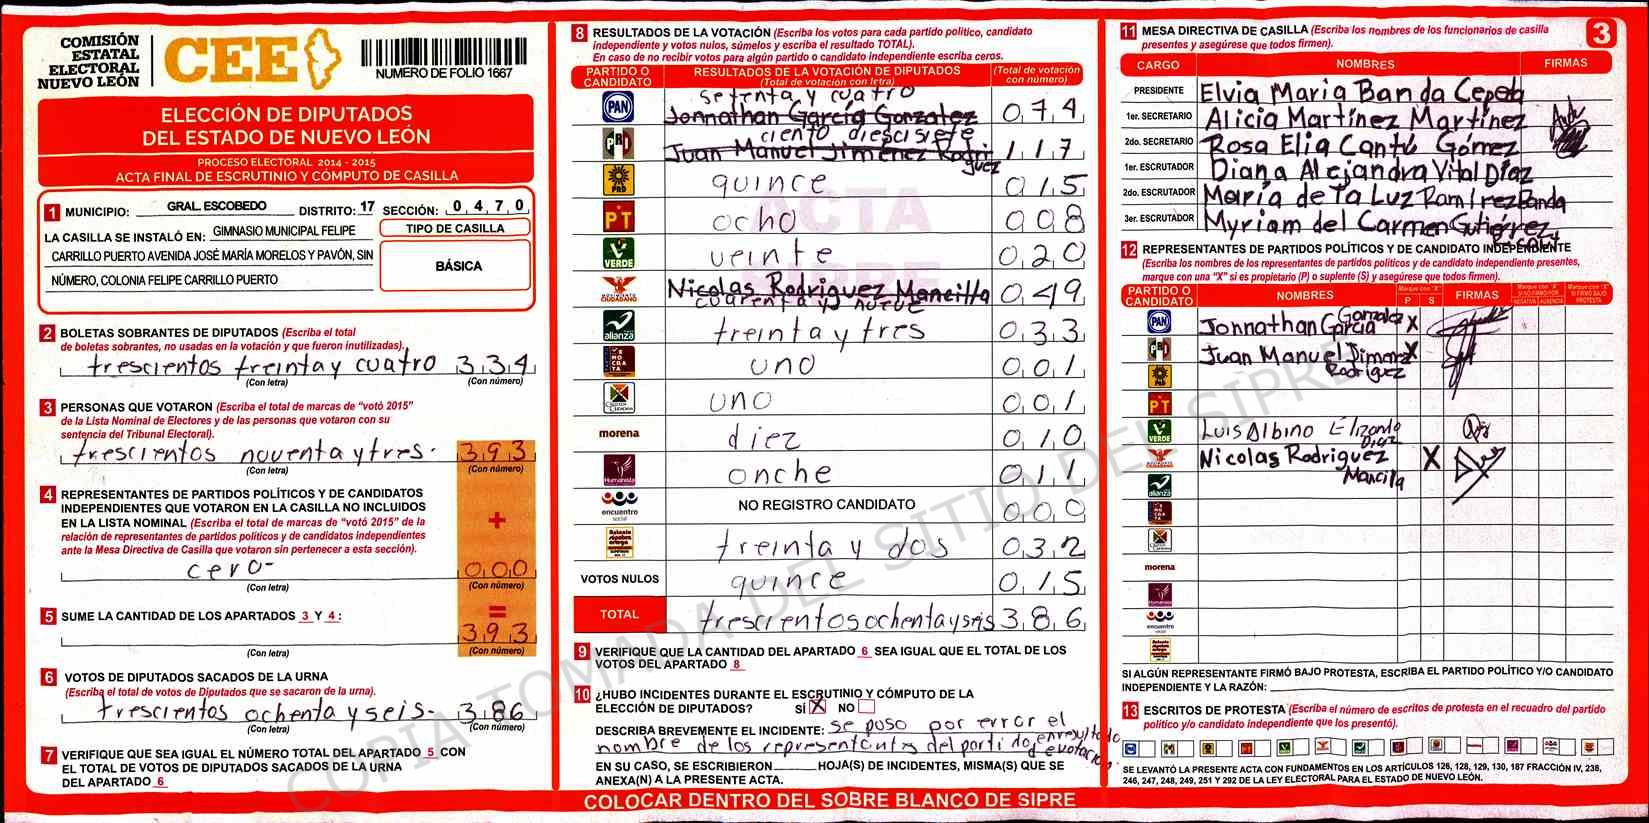 COMISIÓN
ESTATAL
ELECTORAL
NUEVO LEÓN
CEE
NUMERO DE FOLIO 1667
ELECCIÓN DE DIPUTADOS
DEL ESTADO DE NUEVO LEÓN
PROCESO ELECTORAL 2014 - 2015
ACTA FINAL DE ESCRUTINIO Y CÓMPUTO DE CASILLA
1 MUNICIPIO: GRAL. ESCOBEDO DISTRITO: 17 SECCIÓN: 0 4 7 0
LA CASILLA SE INSTALÓ EN: GIMNASIO MUNICIPAL FELIPE
CARRILLO PUERTO AVENIDA JOSÉ MARÍA MORELOS Y PAVÓN, SIN
NÚMERO, COLONIA FELIPE CARRILLO PUERTO
TIPO DE CASILLA
BÁSICA
2 BOLETAS SOBRANTES DE DIPUTADOS (Escriba el total
de boletas sobrantes, no usadas en la votación y que fueron inutilizadas).
trescientos treinta y cuatro 3 3 4
(Con letra) (Con número)
3 PERSONAS QUE VOTARON (Escriba el total de marcas de "votó 2015"
de la Lista Nominal de Electores y de las personas que votaron con su
sentencia del Tribunal Electoral).
trescientos noventa y tres. 3 9 3
(Con letra) (Con número)
4 REPRESENTANTES DE PARTIDOS POLÍTICOS Y DE CANDIDATOS
INDEPENDIENTES QUE VOTARON EN LA CASILLA NO INCLUIDOS
EN LA LISTA NOMINAL (Escriba el total de marcas de "votó 2015" de la
relación de representantes de partidos políticos y de candidatos independientes
ante la Mesa Directiva de Casilla que votaron sin pertenecer a esta sección).
+
cero- 0 0 0
(Con letra) (Con número)
=
5 SUME LA CANTIDAD DE LOS APARTADOS 3 Y 4:
3 9 3
(Con letra) (Con número)
6 VOTOS DE DIPUTADOS SACADOS DE LA URNA
(Escriba el total de votos de Diputados que se sacaron de la urna).
trescientos ochenta y seis- 3 8 6
(Con letra) (Con número)
7 VERIFIQUE QUE SEA IGUAL EL NÚMERO TOTAL DEL APARTADO 5 CON
EL TOTAL DE VOTOS DE DIPUTADOS SACADOS DE LA URNA
DEL APARTADO 6
8 RESULTADOS DE LA VOTACIÓN (Escriba los votos para cada partido político, candidato
independiente y votos nulos, súmelos y escriba el resultado TOTAL).
En caso de no recibir votos para algún partido o candidato independiente escriba ceros.
PARTIDO O CANDIDATO RESULTADOS DE LA VOTACIÓN DE DIPUTADOS (Total de votación con letra) (Total de votación con número)
setenta y cuatro
PAN Jonnathan García Gonzalez 0 7 4
ciento diescisiete
PRI Juan Manuel Jiménez Rodriguez 1 1 7
PRD quince 0 1 5
PT ocho 0 0 8
VERDE veinte 0 2 0
MOVIMIENTO CIUDADANO Nicolas Rodriguez Mancilla 0 4 9
cuarenta y nueve
alianza treinta y tres 0 3 3
uno 0 0 1
uno 0 0 1
morena diez 0 1 0
Humanista onche 0 1 1
encuentro social NO REGISTRO CANDIDATO 0 0 0
treinta y dos 0 3 2
VOTOS NULOS quince 0 1 5
TOTAL trescientos ochenta y seis 3 8 6
ACTA
SIPRE
9 VERIFIQUE QUE LA CANTIDAD DEL APARTADO 6 SEA IGUAL QUE EL TOTAL DE LOS
VOTOS DEL APARTADO 8
10 ¿HUBO INCIDENTES DURANTE EL ESCRUTINIO Y CÓMPUTO DE LA
ELECCIÓN DE DIPUTADOS? SÍ X NO
DESCRIBA BREVEMENTE EL INCIDENTE: se puso por error el
nombre de los representantes del partido en resultado
de votación.
EN SU CASO, SE ESCRIBIERON HOJA(S) DE INCIDENTES, MISMA(S) QUE SE
ANEXA(N) A LA PRESENTE ACTA.
COLOCAR DENTRO DEL SOBRE BLANCO DE SIPRE
11 MESA DIRECTIVA DE CASILLA (Escriba los nombres de los funcionarios de casilla
presentes y asegúrese que todos firmen).
3
CARGO NOMBRES FIRMAS
PRESIDENTE Elvia Maria Banda Cepeda
1er. SECRETARIO Alicia Martínez Martínez
2do. SECRETARIO Rosa Elia Cantú Gómez
1er. ESCRUTADOR Diana Alejandra Vital Díaz
2do. ESCRUTADOR María de la Luz Ramírez Banda
3er. ESCRUTADOR Myriam del Carmen Gutiérrez
12 REPRESENTANTES DE PARTIDOS POLÍTICOS Y DE CANDIDATO INDEPENDIENTE
(Escriba los nombres de los representantes de partidos políticos y de candidato independiente presentes,
marque con una "X" si es propietario (P) o suplente (S) y asegúrese que todos firmen).
PARTIDO O CANDIDATO NOMBRES Marque con "X" P S FIRMAS
PAN Jonnathan García Gonzalez X
PRI Juan Manuel Jimenez Rodriguez X
PRD
PT
VERDE Luis Albino Elizondo Diaz
Nicolas Rodriguez Mancilla X
alianza
morena
Humanista
encuentro social
SI ALGÚN REPRESENTANTE FIRMÓ BAJO PROTESTA, ESCRIBA EL PARTIDO POLÍTICO Y/O CANDIDATO
INDEPENDIENTE Y LA RAZÓN:
13 ESCRITOS DE PROTESTA (Escriba el número de escritos de protesta en el recuadro del partido
político y/o candidato independiente que los presentó).
SE LEVANTÓ LA PRESENTE ACTA CON FUNDAMENTOS EN LOS ARTÍCULOS 126, 128, 129, 130, 187 FRACCIÓN IV, 238,
246, 247, 248, 249, 251 Y 292 DE LA LEY ELECTORAL PARA EL ESTADO DE NUEVO LEÓN.
COPIA TOMADA DEL SITIO DEL SIPRE